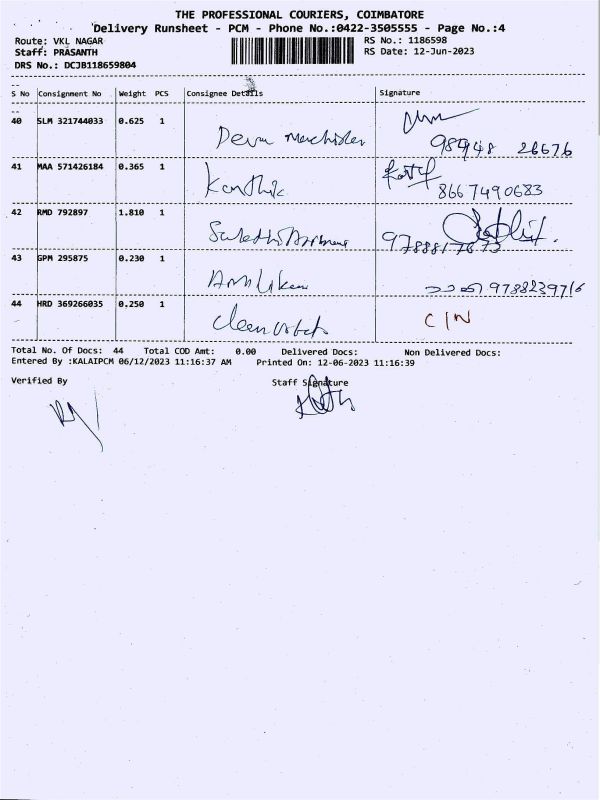 THE PROFESSIONAL COURIERS, COIMBATORE
Delivery Runsheet - PCM - Phone No.:0422-3505555 - Page No.:4
Route: VKL NAGAR
RS No.: 1186598
Staff: PRASANTH
RS Date: 12-Jun-2023
DRS No.: DCJB118659804
S No Consignment No Weight PCS Consignee Details Signature
40 SLM 321744033 0.625 1
98948 26676
41 MAA 571426184 0.365 1 Karthik
8667490683
42 RMD 792897 1.810 1
9788817673
43 GPM 295875 0.230 1
9788239716
44 HRD 369266035 0.250 1 C/N
Total No. Of Docs: 44 Total COD Amt: 0.00 Delivered Docs: Non Delivered Docs:
Entered By :KALAIPCM 06/12/2023 11:16:37 AM Printed On: 12-06-2023 11:16:39
Verified By Staff Signature